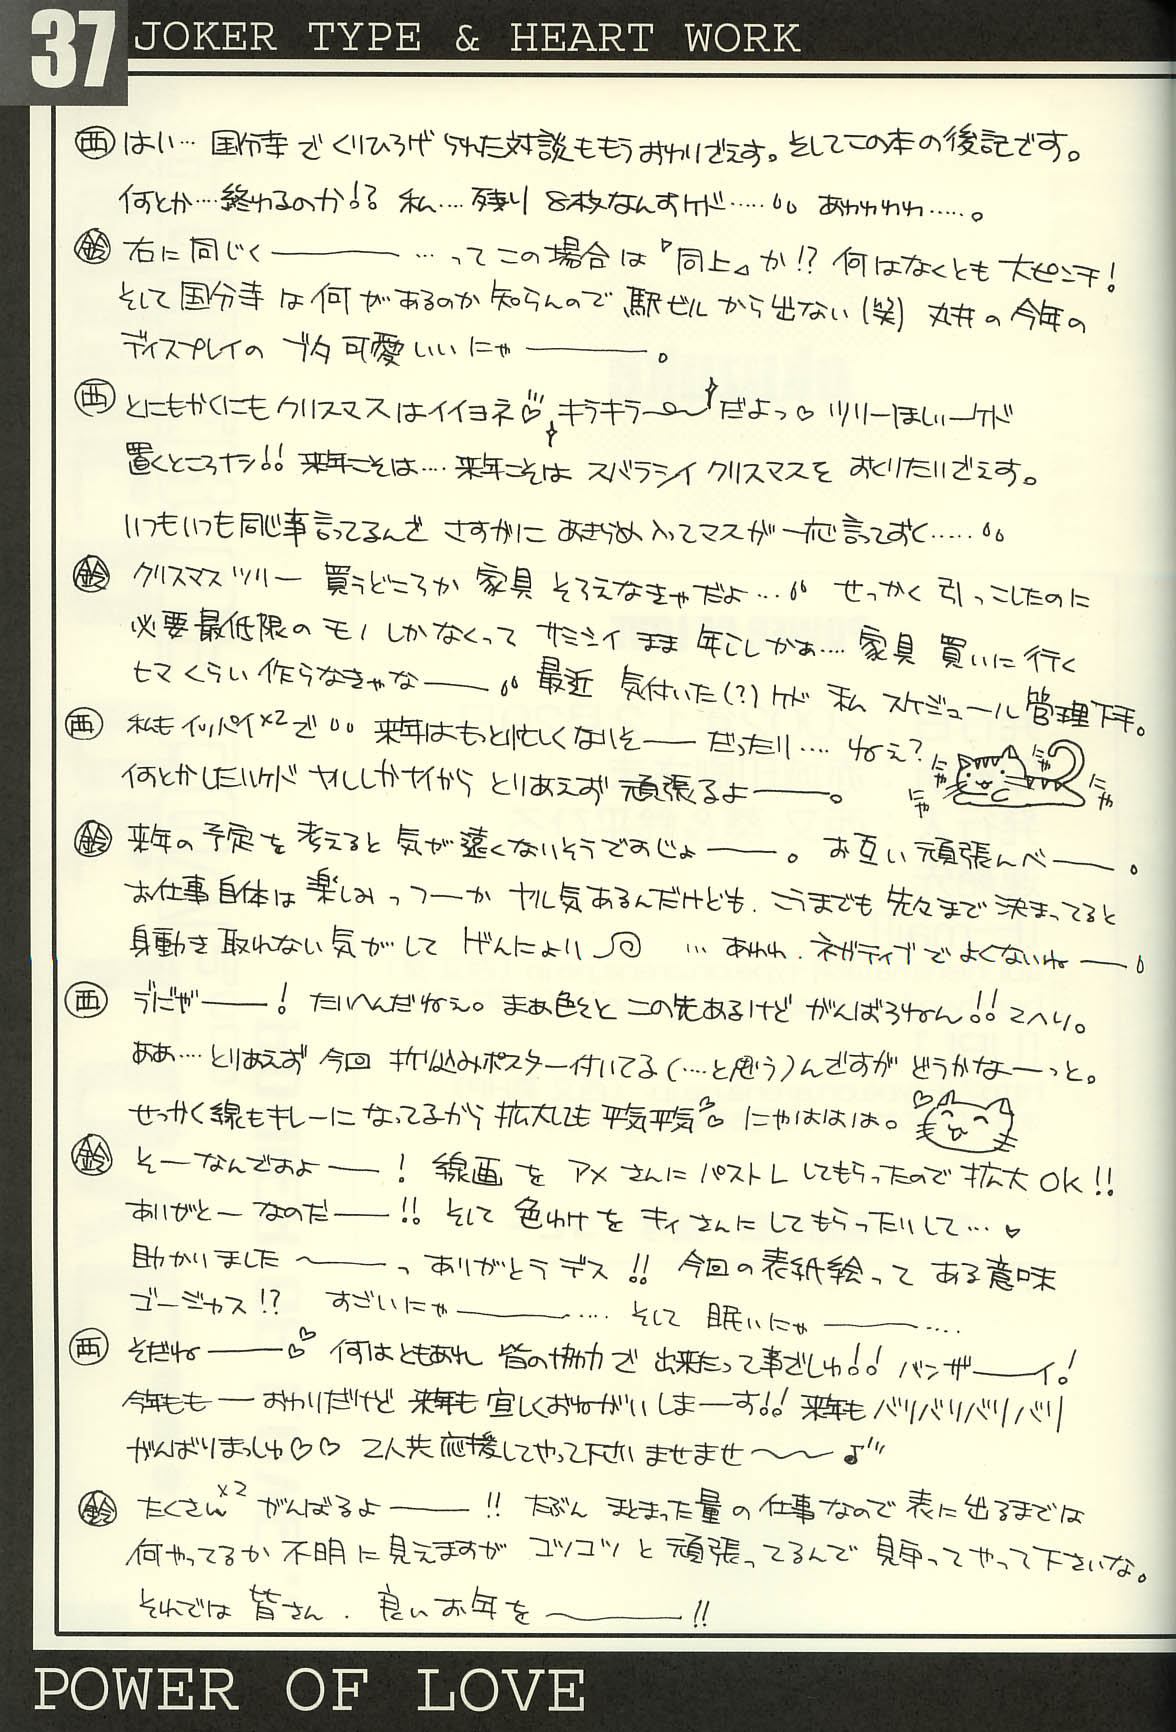 37
JOKER TYPE & HEART WORK
西 はい… 国分寺でくりひろげられた対談ももうおわりざえす。そしてこの本の後記です。
何とか…終わるのか!? 私…. 残り 8枚なんすケド…… あわわわわ…..。
鈴 右に同じく――― …ってこの場合は『同上』か!? 何はなくとも大ピンチ!
そして国分寺は何があるのか知らんので駅ビルから出ない(笑) 丸井の今年の
ディスプレイのブタ可愛いいにゃ―――。
西 とにもかくにもクリスマスはイイヨネ♡ キラキラ〜だよっ♡ ツリーほしいーケド
置くところナシ!! 来年こそは…. 来年こそはスバラシイクリスマスをおくりたいざえす。
いつもいつも同じ事言ってるんで さすがに あきらめ入ってマスが一応言っておく…..
鈴 クリスマスツリー 買うどころか 家具 そろえなきゃだよ… せっかく引っこしたのに
必要最低限のモノしかなくって サミシイまま 年こしかぁ…. 家具 買いに行く
ヒマくらい作らなきゃな―― 最近 気付いた(?)ケド 私 スケジュール管理下手。
西 私もイッパイ×2で 来年はもっと忙しくないそ――だったり…. ねぇ?
にゃ にゃ にゃ にゃ
何とかしたいケド ヤルしかナイから とりあえず 頑張るよ―――。
鈴 来年の予定を考えると気が遠くないそうですじょ――。 お互い頑張んべ――。
お仕事自体は楽しみっつーか ヤル気あるんだけども、こうまでも先々まで決まってると
身動き取れない気がして げんにょり … あわわ、ネガティブでよくないね――
西 うにゃ――! たいへんだねぇ。まぁ色々とこの先あるけど がんばろねん!! てへり。
ああ…. とりあえず 今回 折り込みポスター付いてる(….と思う)んですが どうかなーっと。
せっかく線もキレーになってるから 拡大しても平気平気 にゃははは。
鈴 そーなんですよ――! 線画を アメさんに パストレしてもらったので 拡大OK!!
ありがとーなのだ――!! そして 色わけを キィさんに してもらったりして…♡
助かりました〜――っ ありがとうデス!! 今回の表紙絵って ある意味
ゴージャス!? すごいにゃ――― …. そして 眠いにゃ――― ….
西 そだね――♡ 何はともあれ 皆の協力で 出来たって事でしゅ!! バンザ――イ!
今年もも ― おわりだけど 来年も宜しくおねがいしまーす!! 来年もバリバリバリバリ
がんばりまっしゅ♡♡ 2人共応援してやって下さいませませ〜〜♪
鈴 たくさん×2 がんばるよ――!! たぶん まとまった量の仕事なので 表に出るまでは
何やってるか 不明に見えますが コツコツと頑張ってるんで 見守ってやって下さいな。
それでは 皆さん、良いお年を〜―――!!
POWER OF LOVE